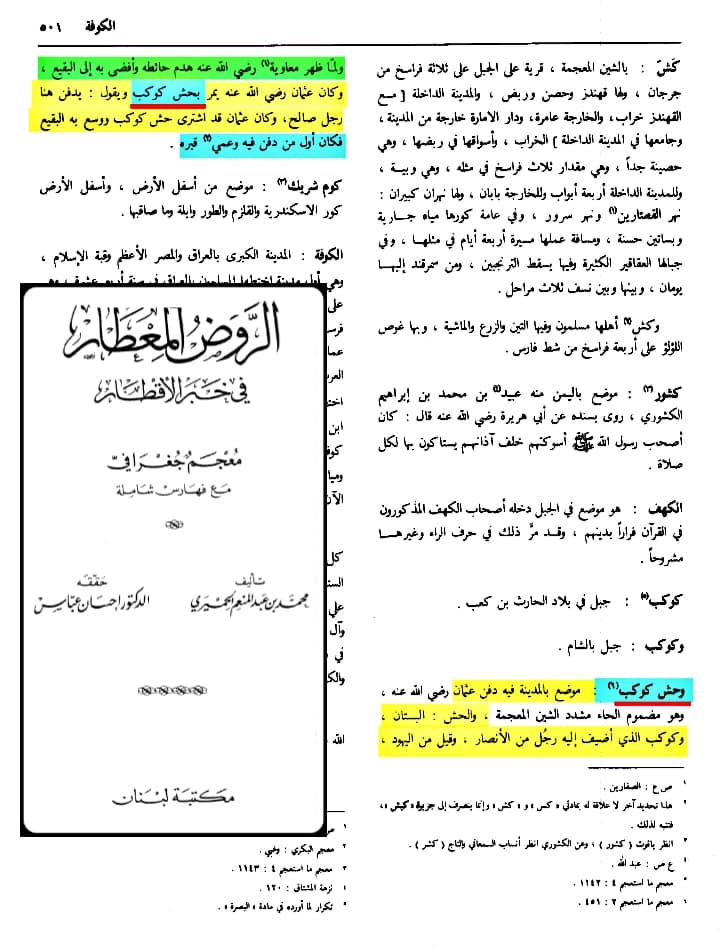 الكوفة ٥٠١
كَشّ : بالشين المعجمة ، قرية على الجبل على ثلاثة فراسخ من
جرجان ، ولها قهندز وحصن وربض ، والمدينة الداخلة [ مع
القهندز خراب، والخارجة عامرة، ودار الامارة خارجة من المدينة ،
وجامعها في المدينة الداخلة ] الخراب ، وأسواقها في ربضها ، وهي
حصينة جداً ، وهي مقدار ثلاث فراسخ في مثله ، وهي وبية ،
وللمدينة الداخلة أربعة أبواب وللخارجة بابان ، ولها نهران كبيران :
نهر القصتارين(١) ونهر سرور ، وفي عامة كورها مياه جارية
وبساتين حسنة ، ومسافة عملها مسيرة أربعة أيام في مثلها ، وفي
جبالها العقاقير الكثيرة وفيها يسقط الترنجبين ، ومن سمرقند إليها
يومان ، وبينها وبين نسف ثلاث مراحل .
وكش(٢) أهلها مسلمون وفيها التين والزرع والماشية ، وبها غوص
اللؤلؤ على أربعة فراسخ من شط فارس .
كشور(٣) : موضع باليمن منه عبيد(٤) بن محمد بن إبراهيم
الكشوري ، روى بسنده عن أبي هريرة رضي الله عنه قال : كان
أصحاب رسول الله ﷺ أسوكتهم خلف آذانهم يستاكون بها لكل
صلاة .
الكهف : هو موضع في الجبل دخله أصحاب الكهف المذكورون
في القرآن فراراً بدينهم ، وقد مرَّ ذلك في حرف الراء وغيرها
مشروحاً .
كوكب(٥) : جبل في بلاد الحارث بن كعب .
وكوكب : جبل بالشام .
وحش كوكب(٦) : موضع بالمدينة فيه دفن عثمان رضي الله عنه ،
وهو مضموم الحاء مشدد الشين المعجمة ، والحش : البستان ،
وكوكب الذي أضيف إليه رجُل من الأنصار ، وقيل من اليهود ،
١ ص ع : الصفارين .
٢ هذا تحديد آخر لا علاقة له بمادتي « كس » و « كش » وإنما ينصرف إلى جزيرة « كيش » ،
فتنبه لذلك .
٣ انظر ياقوت ( كشور ) ، وعن الكشوري انظر أنساب السمعاني والتاج ( كشر ) .
٤ ع ص : عبد الله .
٥ معجم ما استعجم ٤ : ١١٤٢ .
٦ معجم ما استعجم ٢ : ٤٥١ .
ولمّا ظهر معاوية(١) رضي الله عنه هدم حائطه وأفضى به إلى البقيع ،
وكان عثمان رضي الله عنه يمر بحش كوكب ويقول : يدفن هنا
رجل صالح، وكان عثمان قد اشترى حش كوكب ووسع به البقيع
فكان أول من دفن فيه وعمي(٢) قبره .
كوم شريك(٣) : موضع من أسفل الأرض ، وأسفل الأرض
كور الاسكندرية والقلزم والطور وايلة وما صاقبها .
الكوفة : المدينة الكبرى بالعراق والمصر الأعظم وقبة الإسلام ،
وهي أول مدينة اختطها المسلمون بالعراق في سنة أربع عشرة ، وهي
على
الآن
كل
علي
في
الله
الرَّوض المعطار
في خبر الأقطار
معجم جغرافي
مع فهارس شاملة
تأليف
محمد بن عبد المنعم الحميري
حققه
الدكتور احسان عباس
مكتبة لبنان
٢ معجم البكري : وغبي .
٣ معجم ما استعجم ٤ : ١١٤٣ .
٤ نزهة المشتاق : ١٢٠ .
٥ تكرار لما أورده في مادة « البصرة » .